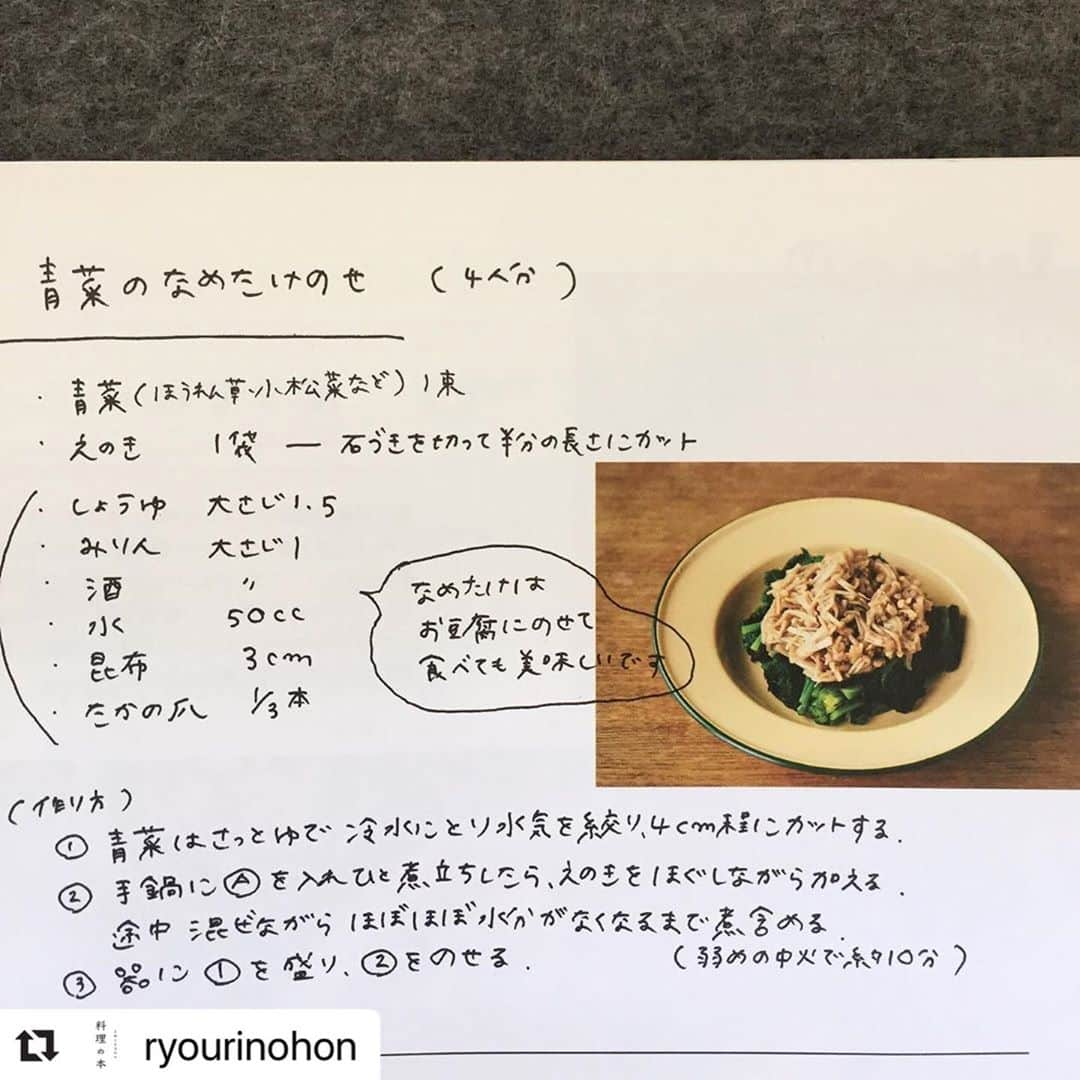 青菜のなめたけのせ (4人分)
・青菜(ほうれん草、小松菜など) 1束
・えのき 1袋 ー 石づきを切って半分の長さにカット
・しょうゆ 大さじ1.5
・みりん 大さじ1
・酒 〃
・水 50cc
・昆布 3cm
・たかの爪 1/3本
なめたけは
お豆腐にのせて
食べても美味しいです
(作り方)
① 青菜はさっとゆで 冷水にとり水気を絞り、4cm程にカットする.
② 手鍋にⒶを入れひと煮立ちしたら、えのきをほぐしながら加える.
途中 混ぜながら ほぼほぼ水分がなくなるまで煮含める.
(弱めの中火で約10分)
③ 器に①を盛り、②をのせる.
料理の本
ryourinohon